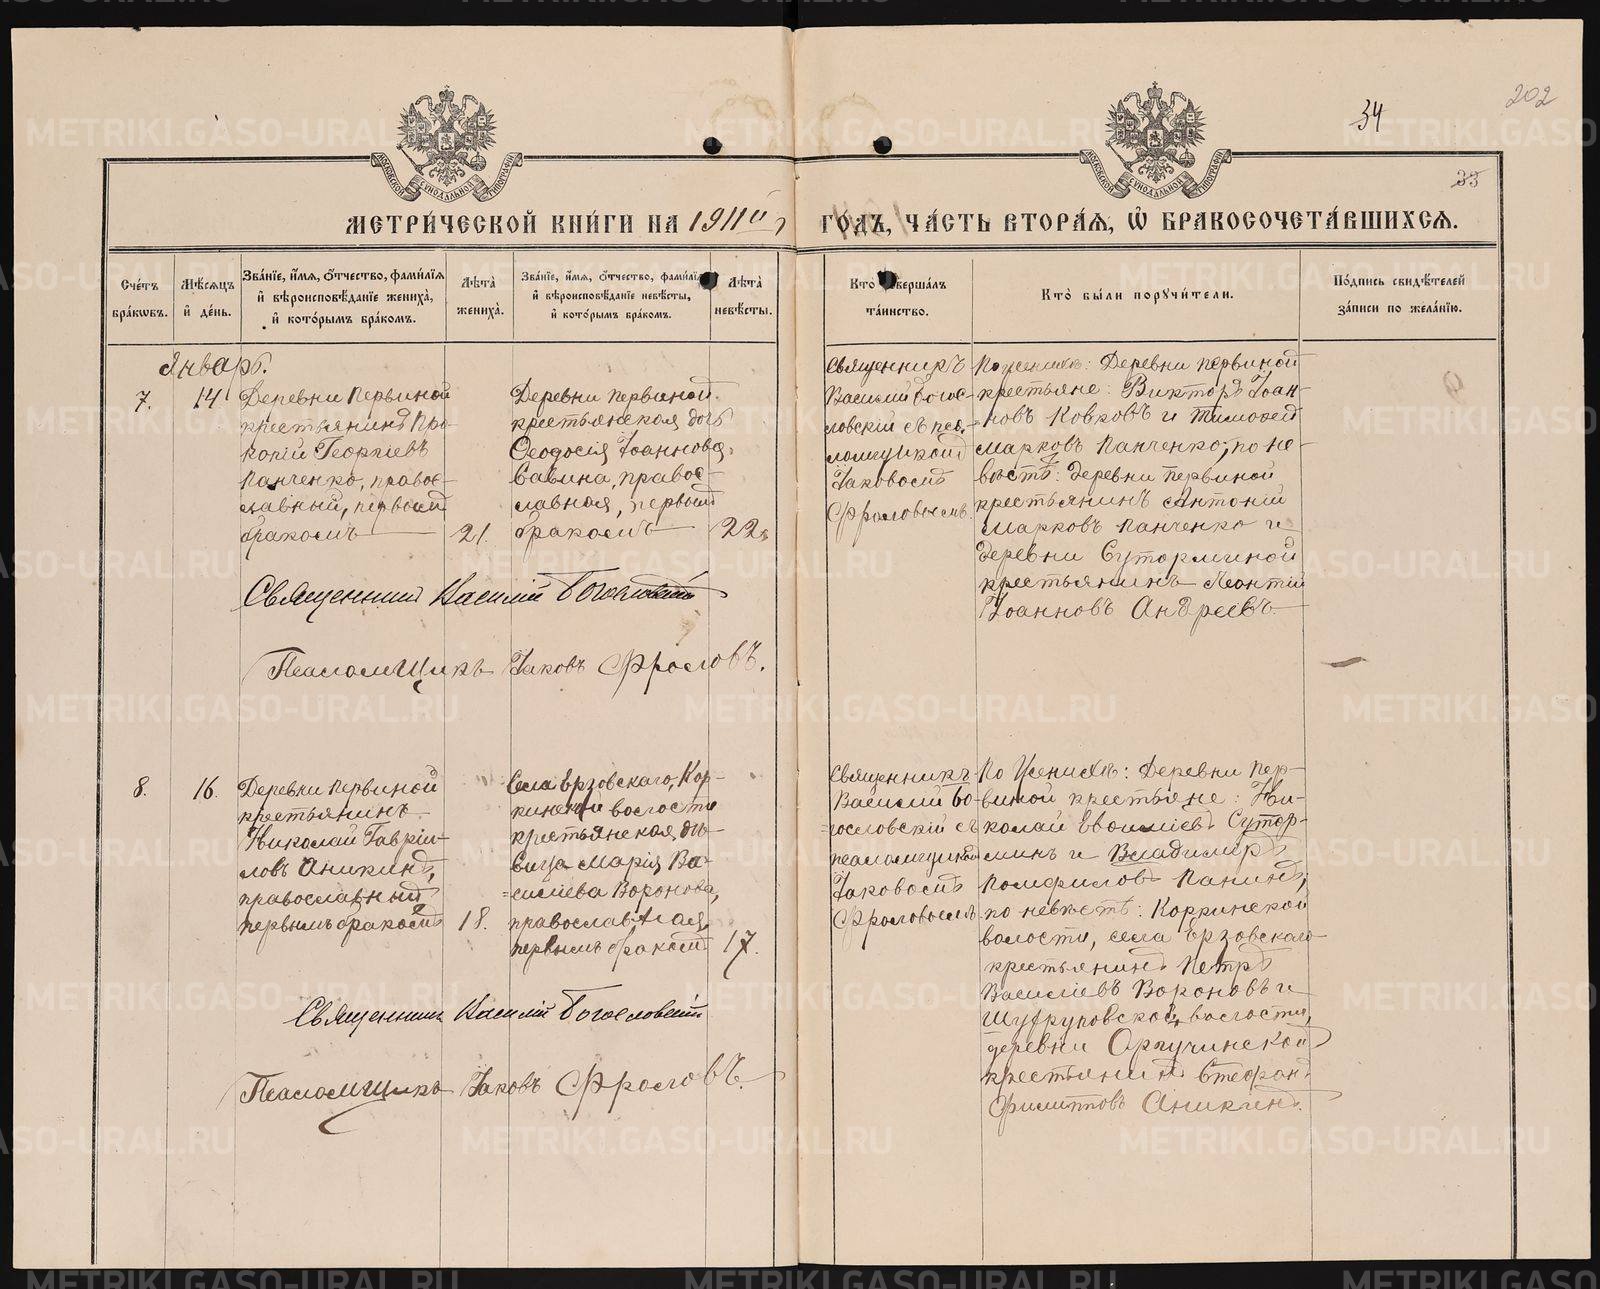 34
202
33
МОСКОВСКОЙ СУНОДАЛЬНОЙ ТИПОГРАФІИ
МОСКОВСКОЙ СУНОДАЛЬНОЙ ТИПОГРАФІИ
МЕТРИ́ЧЕСКОЙ КНИ́ГИ НА 1911й
ГО́ДЪ, ЧА́СТЬ ВТОРА́Я, Ѽ БРАКОСОЧЕТА́ВШИХСЯ.
Сче́тъ
бра́кѡвъ.
Мѣ́сяцъ
и҆ де́нь.
Зва́нїе, и҆́мя, ѻ҆́тчество, фами́лїя
и҆ вѣроисповѣ́данїе жениха̀,
и҆ кото́рымъ бра́комъ.
Лѣ́та
жениха̀.
Зва́нїе, и҆́мя, ѻ҆́тчество, фами́лїя
и҆ вѣроисповѣ́данїе невѣ́сты,
и҆ кото́рымъ бра́комъ.
Лѣ́та
невѣ́сты.
Кто̀ соверша́лъ
та́инство.
Кто̀ бы́ли порꙋчи́тели.
По́дпись свидѣ́телей
за́писи по жела́нїю.
Январь.
7.
14
Деревни Первиной
крестьянинъ Про-
копій Георгіевъ
Панченко, правос-
лавный, первымъ
бракомъ
21.
Деревни Первиной
крестьянская дочь
Ѳеодосія Іоаннова
Савина, правос-
лавная, первымъ
бракомъ
22.
Священникъ
Василій Богос-
ловскій съ пса-
ломщикомъ
Іаковомъ
Фроловымъ.
По женихѣ: Деревни Первиной
крестьяне: Викторъ Іоан-
новъ Ковковъ и Тимофей
Марковъ Панченко; по не-
вѣстѣ: деревни Первиной
крестьянинъ Антоній
Марковъ Панченко и
деревни Суторминой
крестьянинъ Леонтій
Іоанновъ Андреевъ.
Священникъ Василій Богословскій
Псаломщикъ Іаковъ Фроловъ.
8.
16.
Деревни Первиной
крестьянинъ
Николай Гаврии-
ловъ Аникинъ,
православный
первымъ бракомъ
18.
Села Ерзовскаго, Кор-
кинской волости
крестьянская дѣ-
вица Марія Ва-
сильева Воронова,
православная
первымъ бракомъ
17.
Священникъ
Василій Бо-
гословскій съ
псаломщикомъ
Іаковомъ
Фроловымъ
По Женихѣ: Деревни Пер-
виной крестьяне: Ни-
колай Евѳиміевъ Сутор-
минъ и Владимиръ
Памфиловъ Панинъ;
по невѣстѣ: Коркинской
волости, села Ерзовскаго
крестьянинъ Петръ
Васильевъ Вороновъ и
волости,
деревни
крестьянинъ Стефанъ
Филипповъ Аникинъ.
Священникъ Василій Богословскій
Псаломщикъ Іаковъ Фроловъ.
METRIKI.GASO-URAL.RU